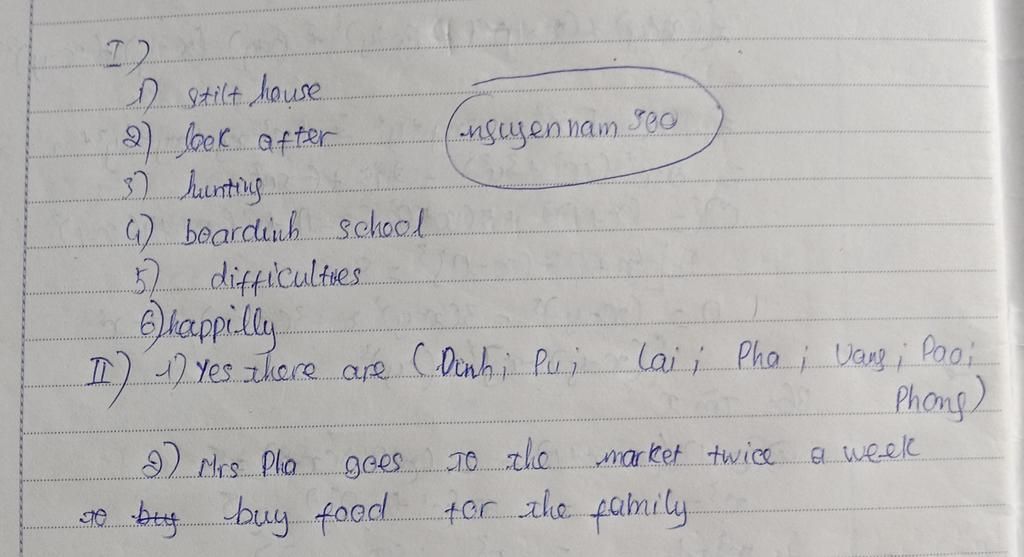 I)
1) stilt house
nguyennam 500
2) look after
3) hunting
4) boardinh school
5) difficulties
6) happilly
II) 1) Yes there are (Dinh; Pu; Lai; Pha; Vang; Pao;
Phong)
2) Mrs Pha goes to the market twice a week
to buy buy food for the family